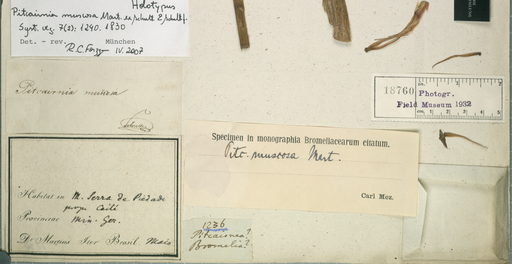 Holotypus
Pitcairnia muscosa Mart. ex Schult. & Schult. f.
Syst. veg. 7(2): 1240. 1830
Det. - rev. München
R.C. Forzza IV. 2007
18760
Photogr.
Field Museum 1932
Pitcairnia muscosa
Specimen in monographia Bromeliacearum citatum.
Pitc. muscosa Mart.
Carl Mez.
Habitat in M. Serra da Piedade
prope Caité
Provinciae Min. Ger.
Dr Martius Iter Brasil. Maio
1236
Pitcairnea?
Bromelia?